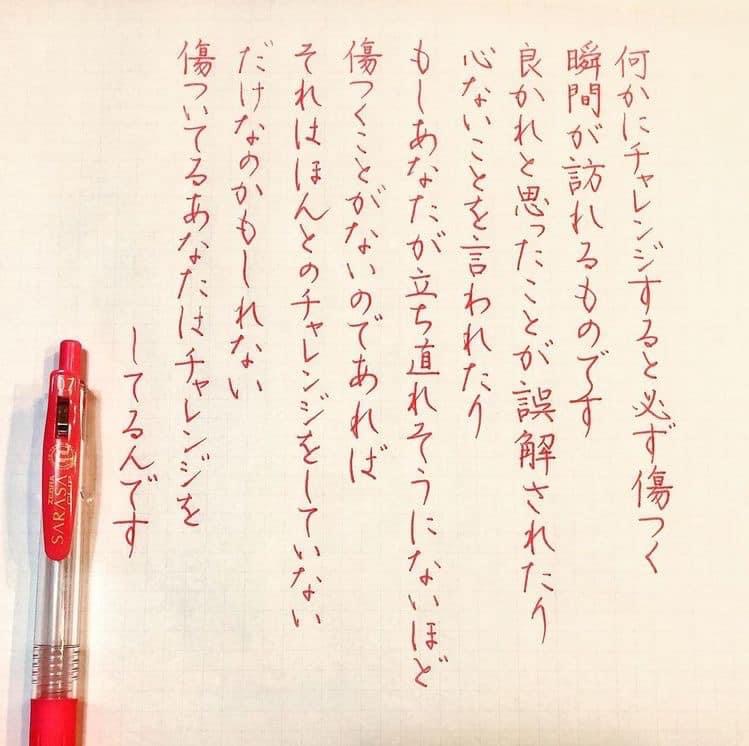 何かにチャレンジすると必ず傷つく
瞬間が訪れるものです
良かれと思ったことが誤解されたり
心ないことを言われたり
もしあなたが立ち直れそうにないほど
傷つくことがないのであれば
それはほんとのチャレンジをしていない
だけなのかもしれない
傷ついてるあなたはチャレンジを
してるんです
0.7
ZEBRA
SARASA
CLIP